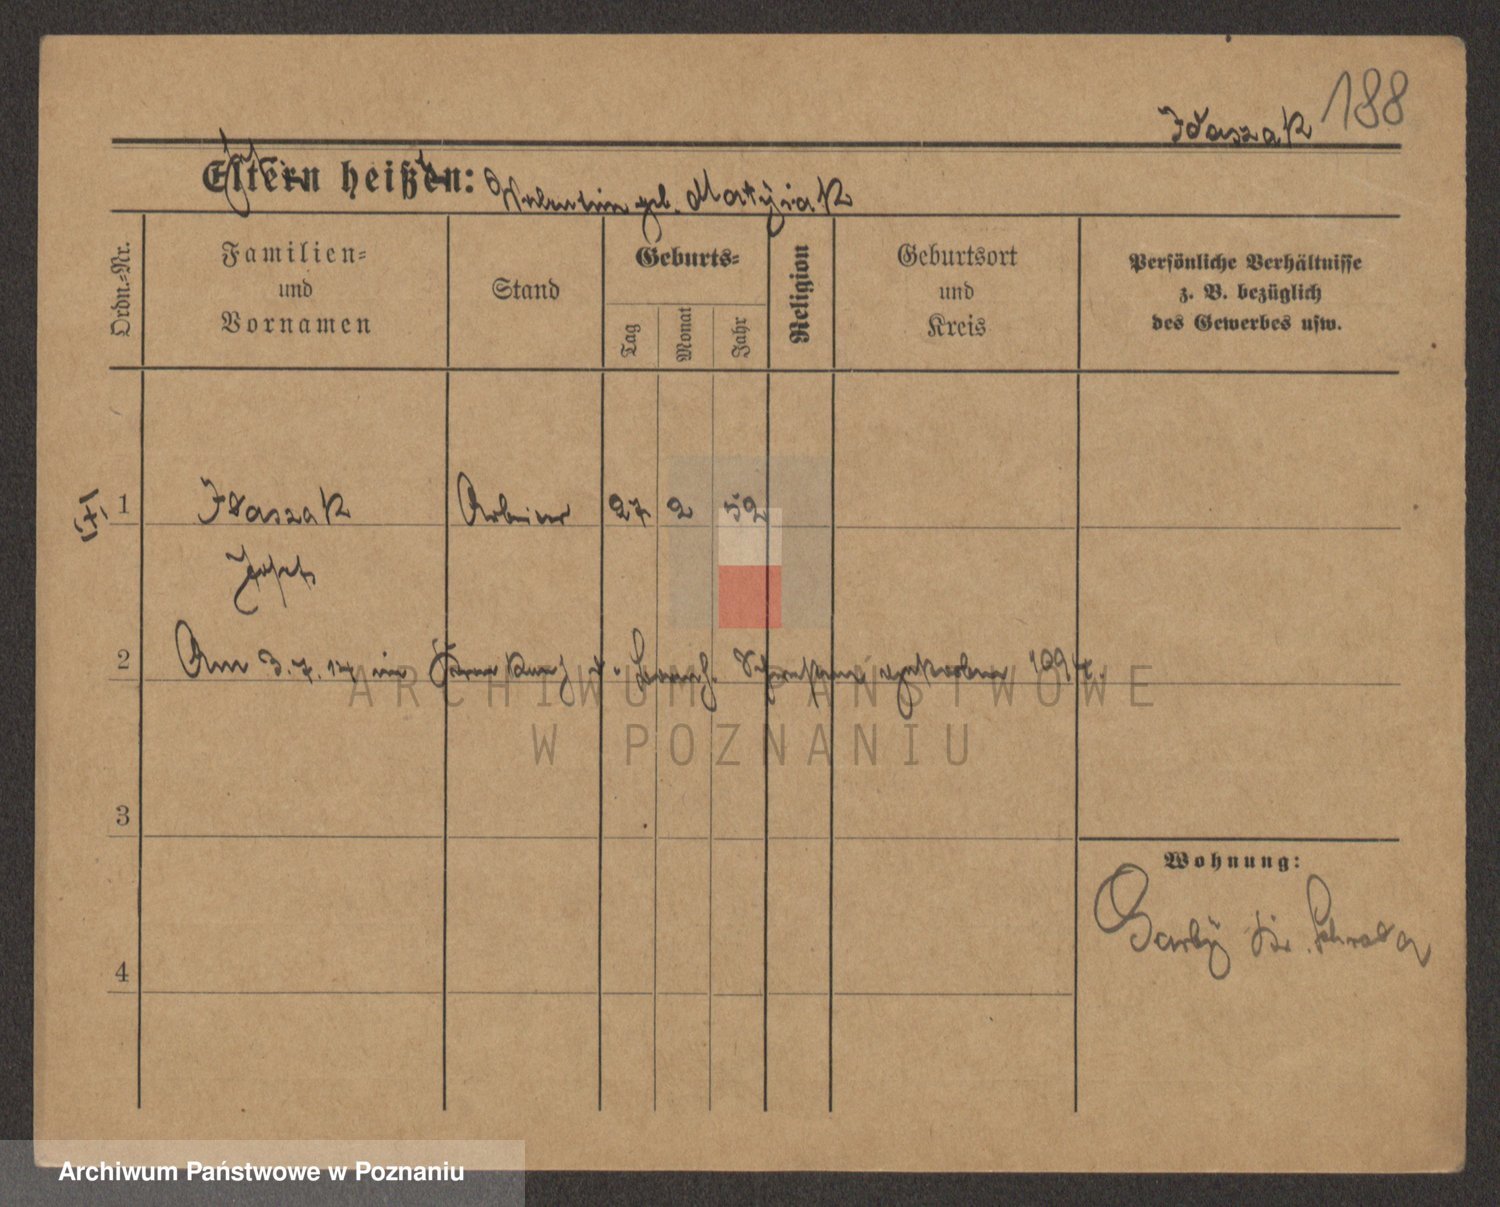 188
Idaszak
Eltern heißen: Valentin geb. Matysiak
Ordn.-Nr.
Familien-
und
Vornamen
Stand
Geburts-
Tag
Monat
Jahr
Religion
Geburtsort
und
Kreis
Persönliche Verhältnisse
z. B. bezüglich
des Gewerbes usw.
1 Idaszak Arbeiter 27 2 52
Josef
2 Am 3.7.14 im gestorben
3
4
Wohnung:
Garby Kr. Schroda
ARCHIWUM PAŃSTWOWE
W POZNANIU
Archiwum Państwowe w Poznaniu